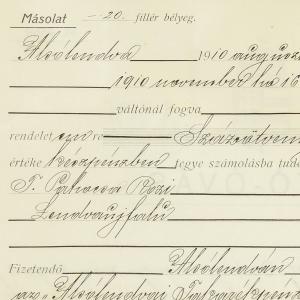 Másolat —20.— fillér bélyeg.
Alsólendva 1910 augusz
1910 november hó 16
váltónál fogva
rendeletemre Százötven
értéke készpénzben jegye számolásba tud
T. Rozi
Lendvaujfalu
Fizetendő Alsólendván
az „Alsólendvai Takarékpénz